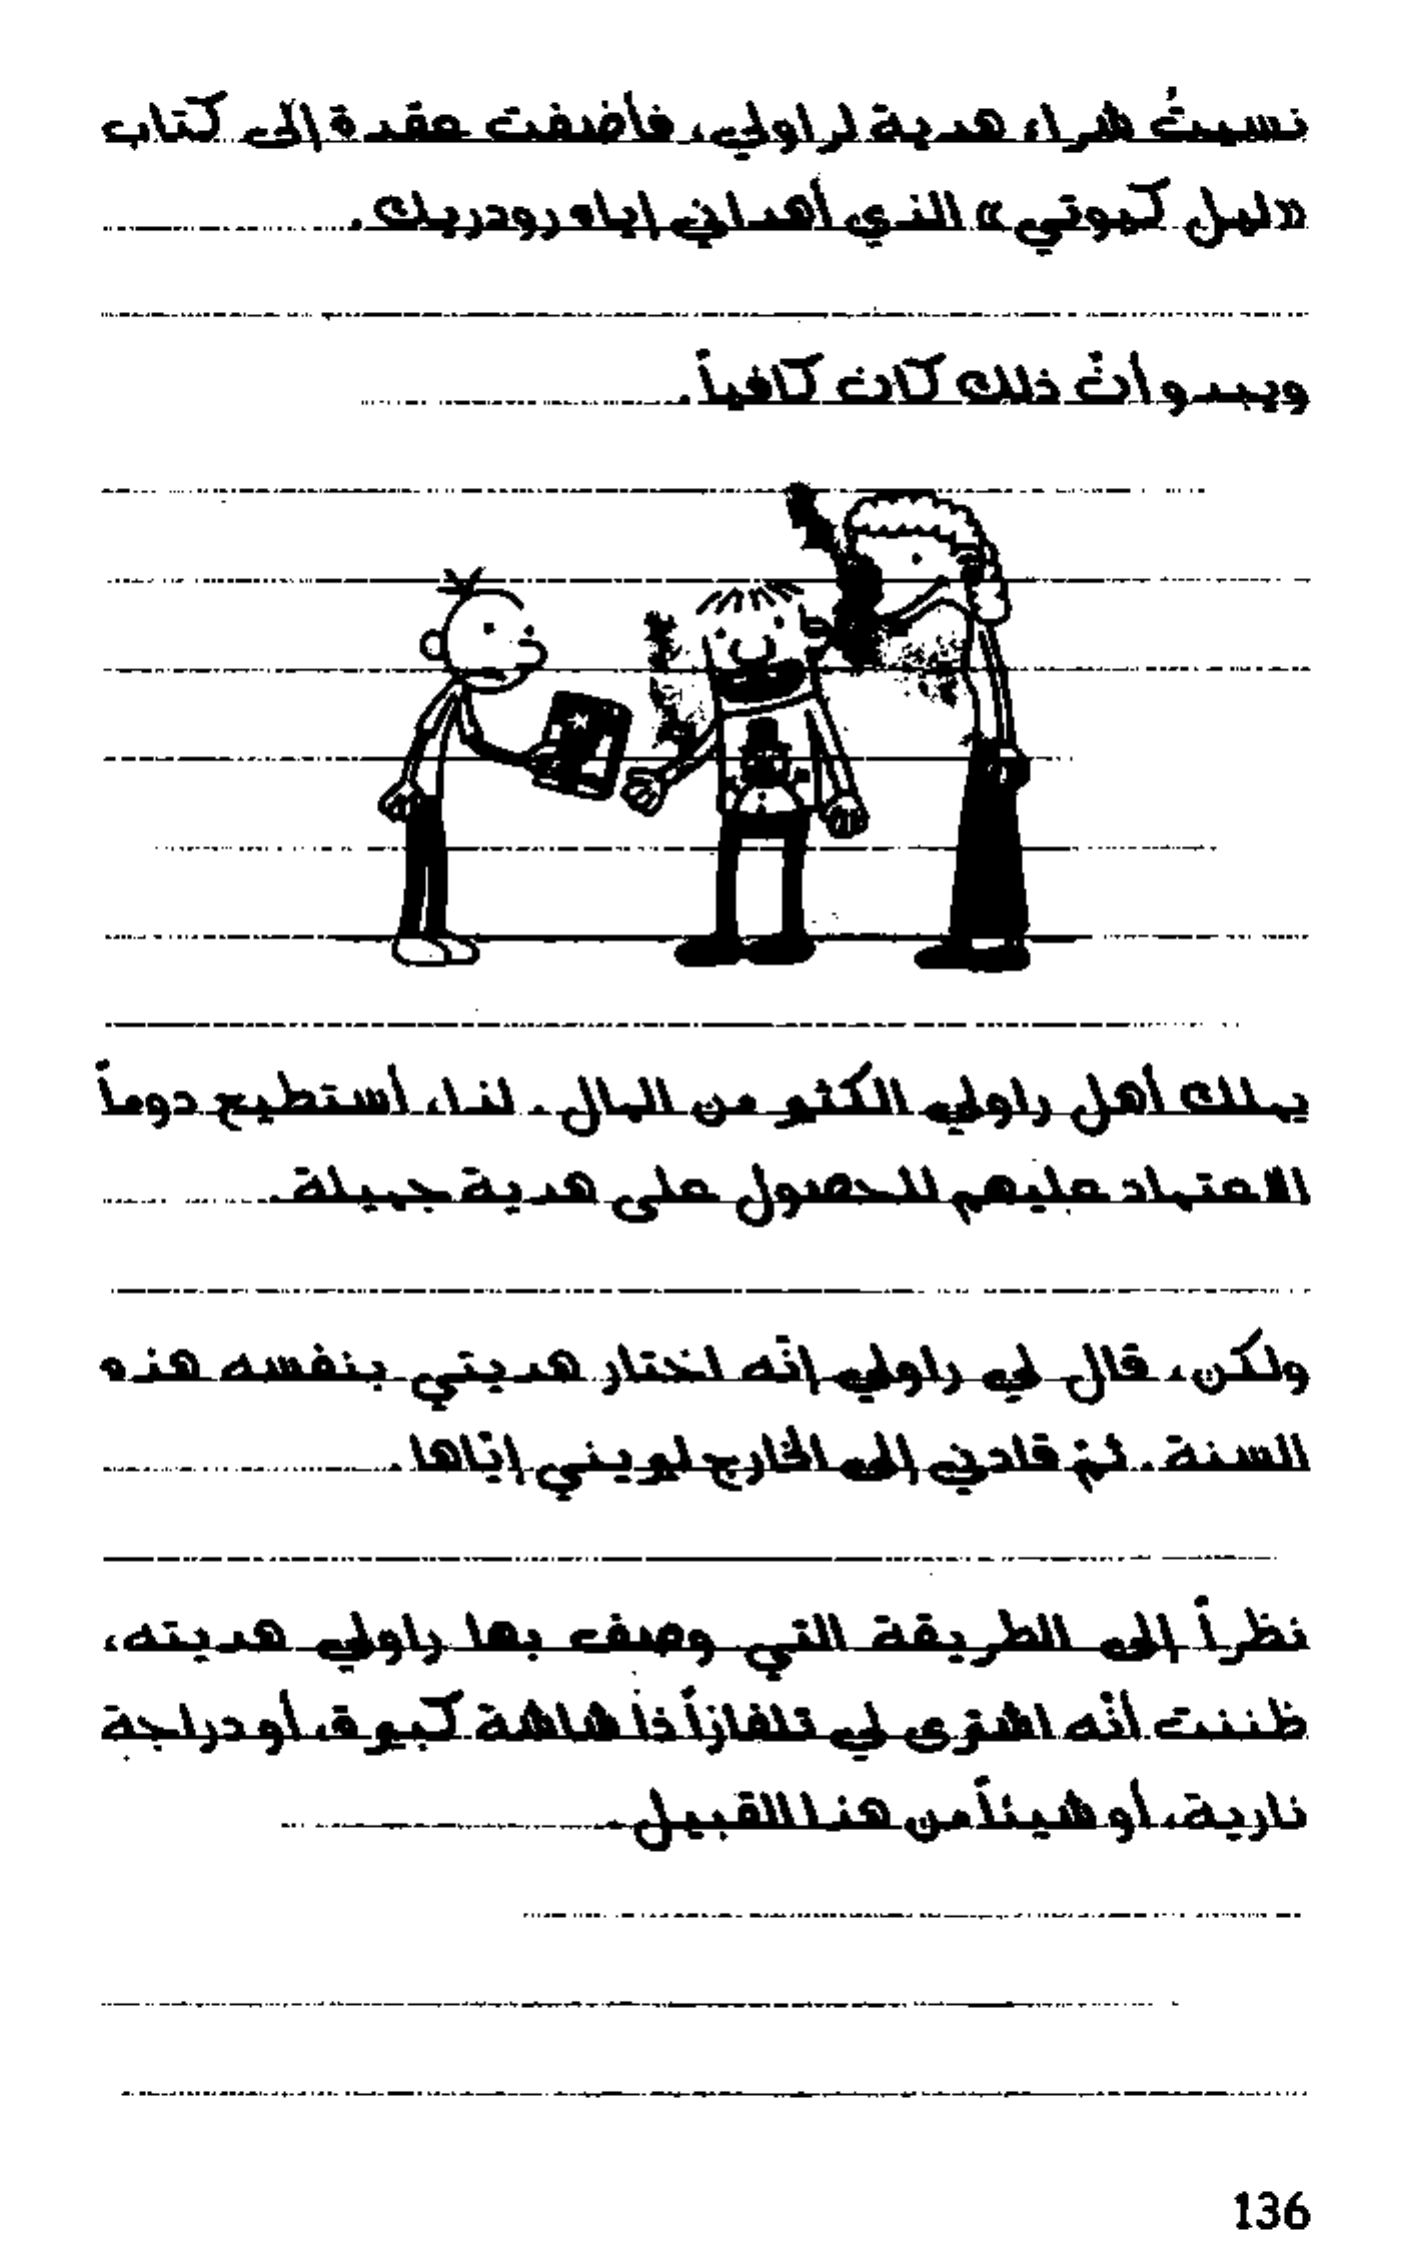 نسيتُ شراء هدية لراولي، فأضفت عقدة إلى كتاب
«ليل كيوتي» الذي أهداني إياه رودريك.
ويبدو أنّ ذلك كان كافياً.
يملك أهل راولي الكثير من المال. لذا، أستطيع دوماً
الاعتماد عليهم للحصول على هدية جميلة.
ولكن، قال لي راولي إنّه اختار هديتي بنفسه هذه
السنة. ثمّ قادني إلى الخارج ليريني إيّاها.
نظراً إلى الطريقة التي وصف بها راولي هديته،
ظننت أنّه اشترى لي تلفازاً ذا شاشة كبيرة، أو دراجة
نارية، أو شيئاً من هذا القبيل.
136